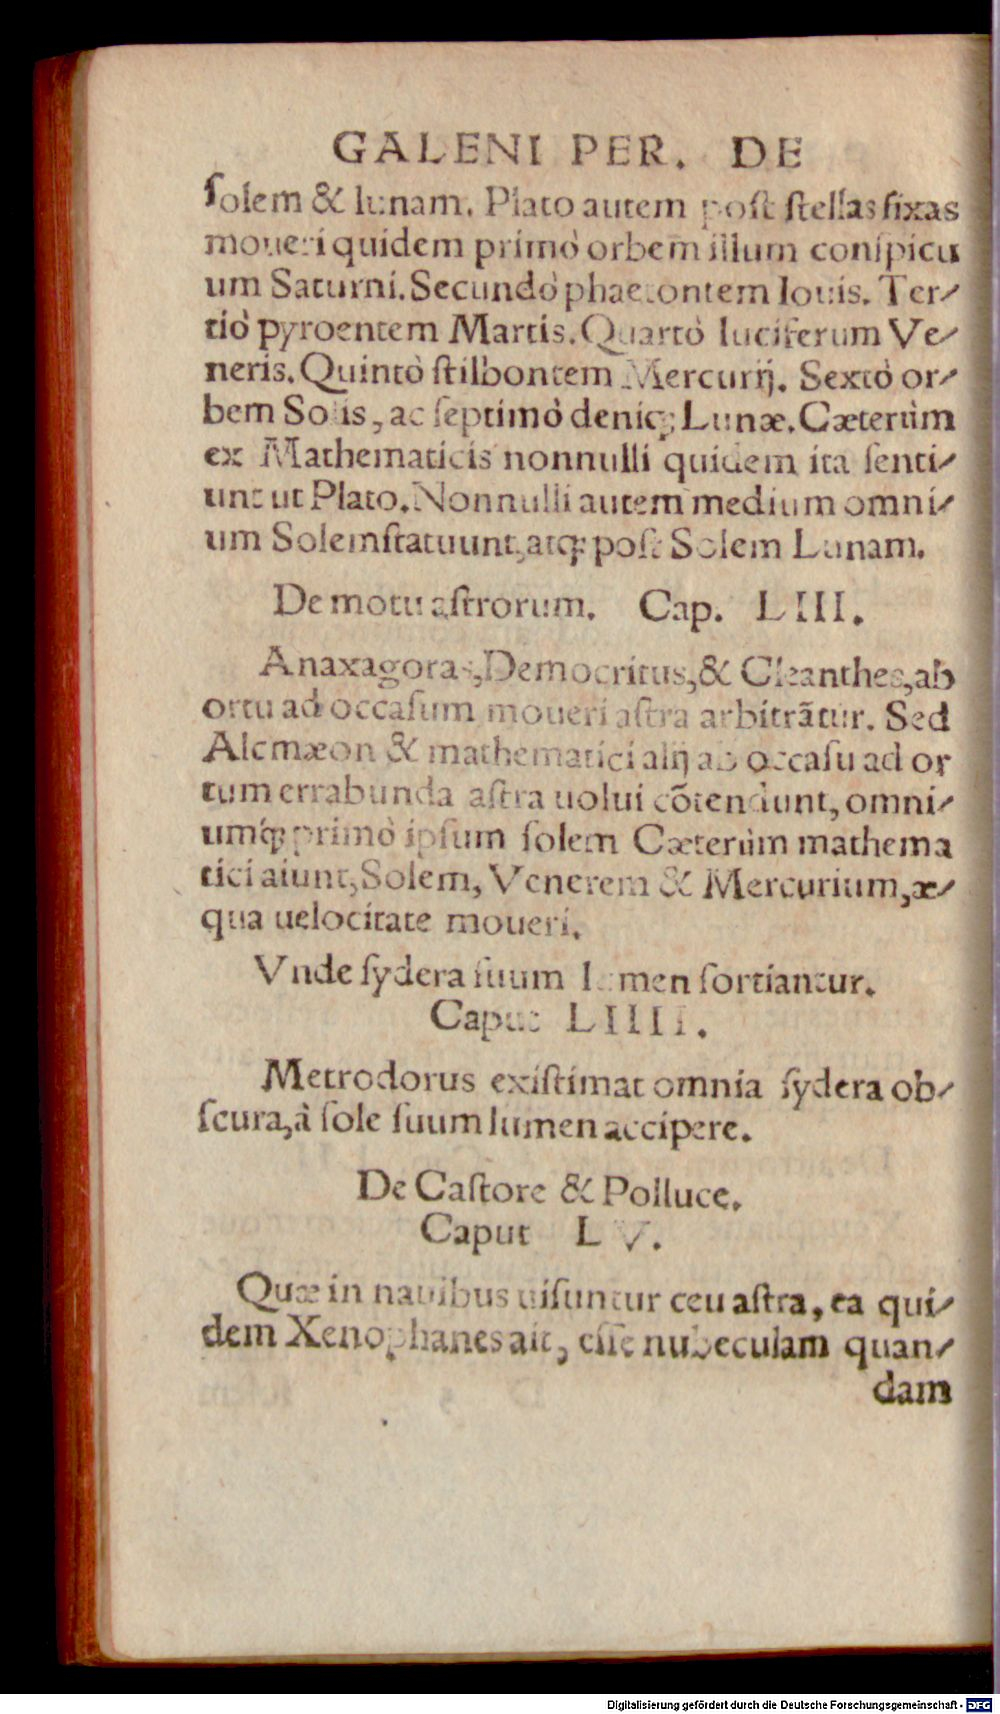 GALENI PER. DE
ſolem & lunam. Plato autem poſt ſtellas fixas
moueri quidem primò orbem illum conſpicu
um Saturni. Secundò phaetontem Iouis. Ter-
tiò pyroentem Martis. Quartò luciferum Ve-
neris. Quintò ſtilbontem Mercurij. Sextò or-
bem Solis, ac ſeptimò deniq; Lunæ. Cæterùm
ex Mathematicis nonnulli quidem ita ſenti-
unt ut Plato. Nonnulli autem medium omni-
um Solem ſtatuunt, atq; poſt Solem Lunam.
De motu aſtrorum. Cap. LIII.
Anaxagoras, Democritus, & Cleanthes, ab
ortu ad occaſum moueri aſtra arbitrãtur. Sed
Alcmæon & mathematici alij ab occaſu ad or
tum errabunda aſtra uolui cõtendunt, omni-
umq́; primò ipſum ſolem Cæterùm mathema
tici aiunt, Solem, Venerem & Mercurium, æ-
qua uelocitate moueri.
Vnde ſydera ſuum lumen ſortiantur.
Caput LIIII.
Metrodorus exiſtimat omnia ſydera ob-
ſcura, à ſole ſuum lumen accipere.
De Caſtore & Polluce.
Caput LV.
Quæ in nauibus uiſuntur ceu aſtra, ea qui-
dem Xenophanes ait, eſſe nubeculam quan-
dam
Digitalisierung gefördert durch die Deutsche Forschungsgemeinschaft - DFG